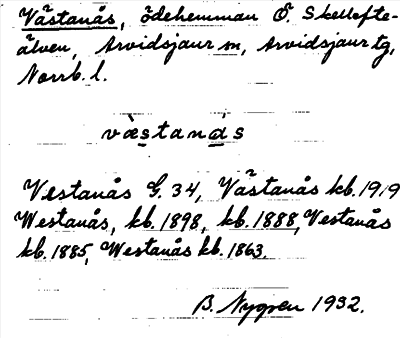 Västanås, ödehemman Ö. Skellefte-
älven, Arvidsjaur sn, Arvidsjaur tg,
Norrb. l.
væstanås
Vestanås G. 34, Västanås kb. 1919
Westanås, kb. 1898, kb. 1888, Vestanås
kb. 1885, Westanås kb. 1863.
B. Nygren 1932.